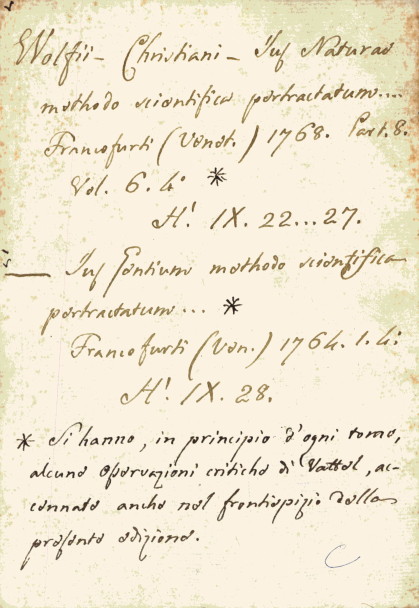 Wolfii – Christiani – Jus Naturae
methodo scientifica pertractatum....
Francofurti (Venet.) 1768. Part. 8.
Vol. 6. 4.° *
H! IX. 22...27.
— Jus Gentium methodo scientifica
pertractatum... *
Francofurti (Ven.) 1764. 1. 4:
H! IX. 28.
* Si hanno, in principio d'ogni tomo,
alcune Osservazioni critiche di Vattel, ac-
cennate anche nel frontispizio della
presente edizione.